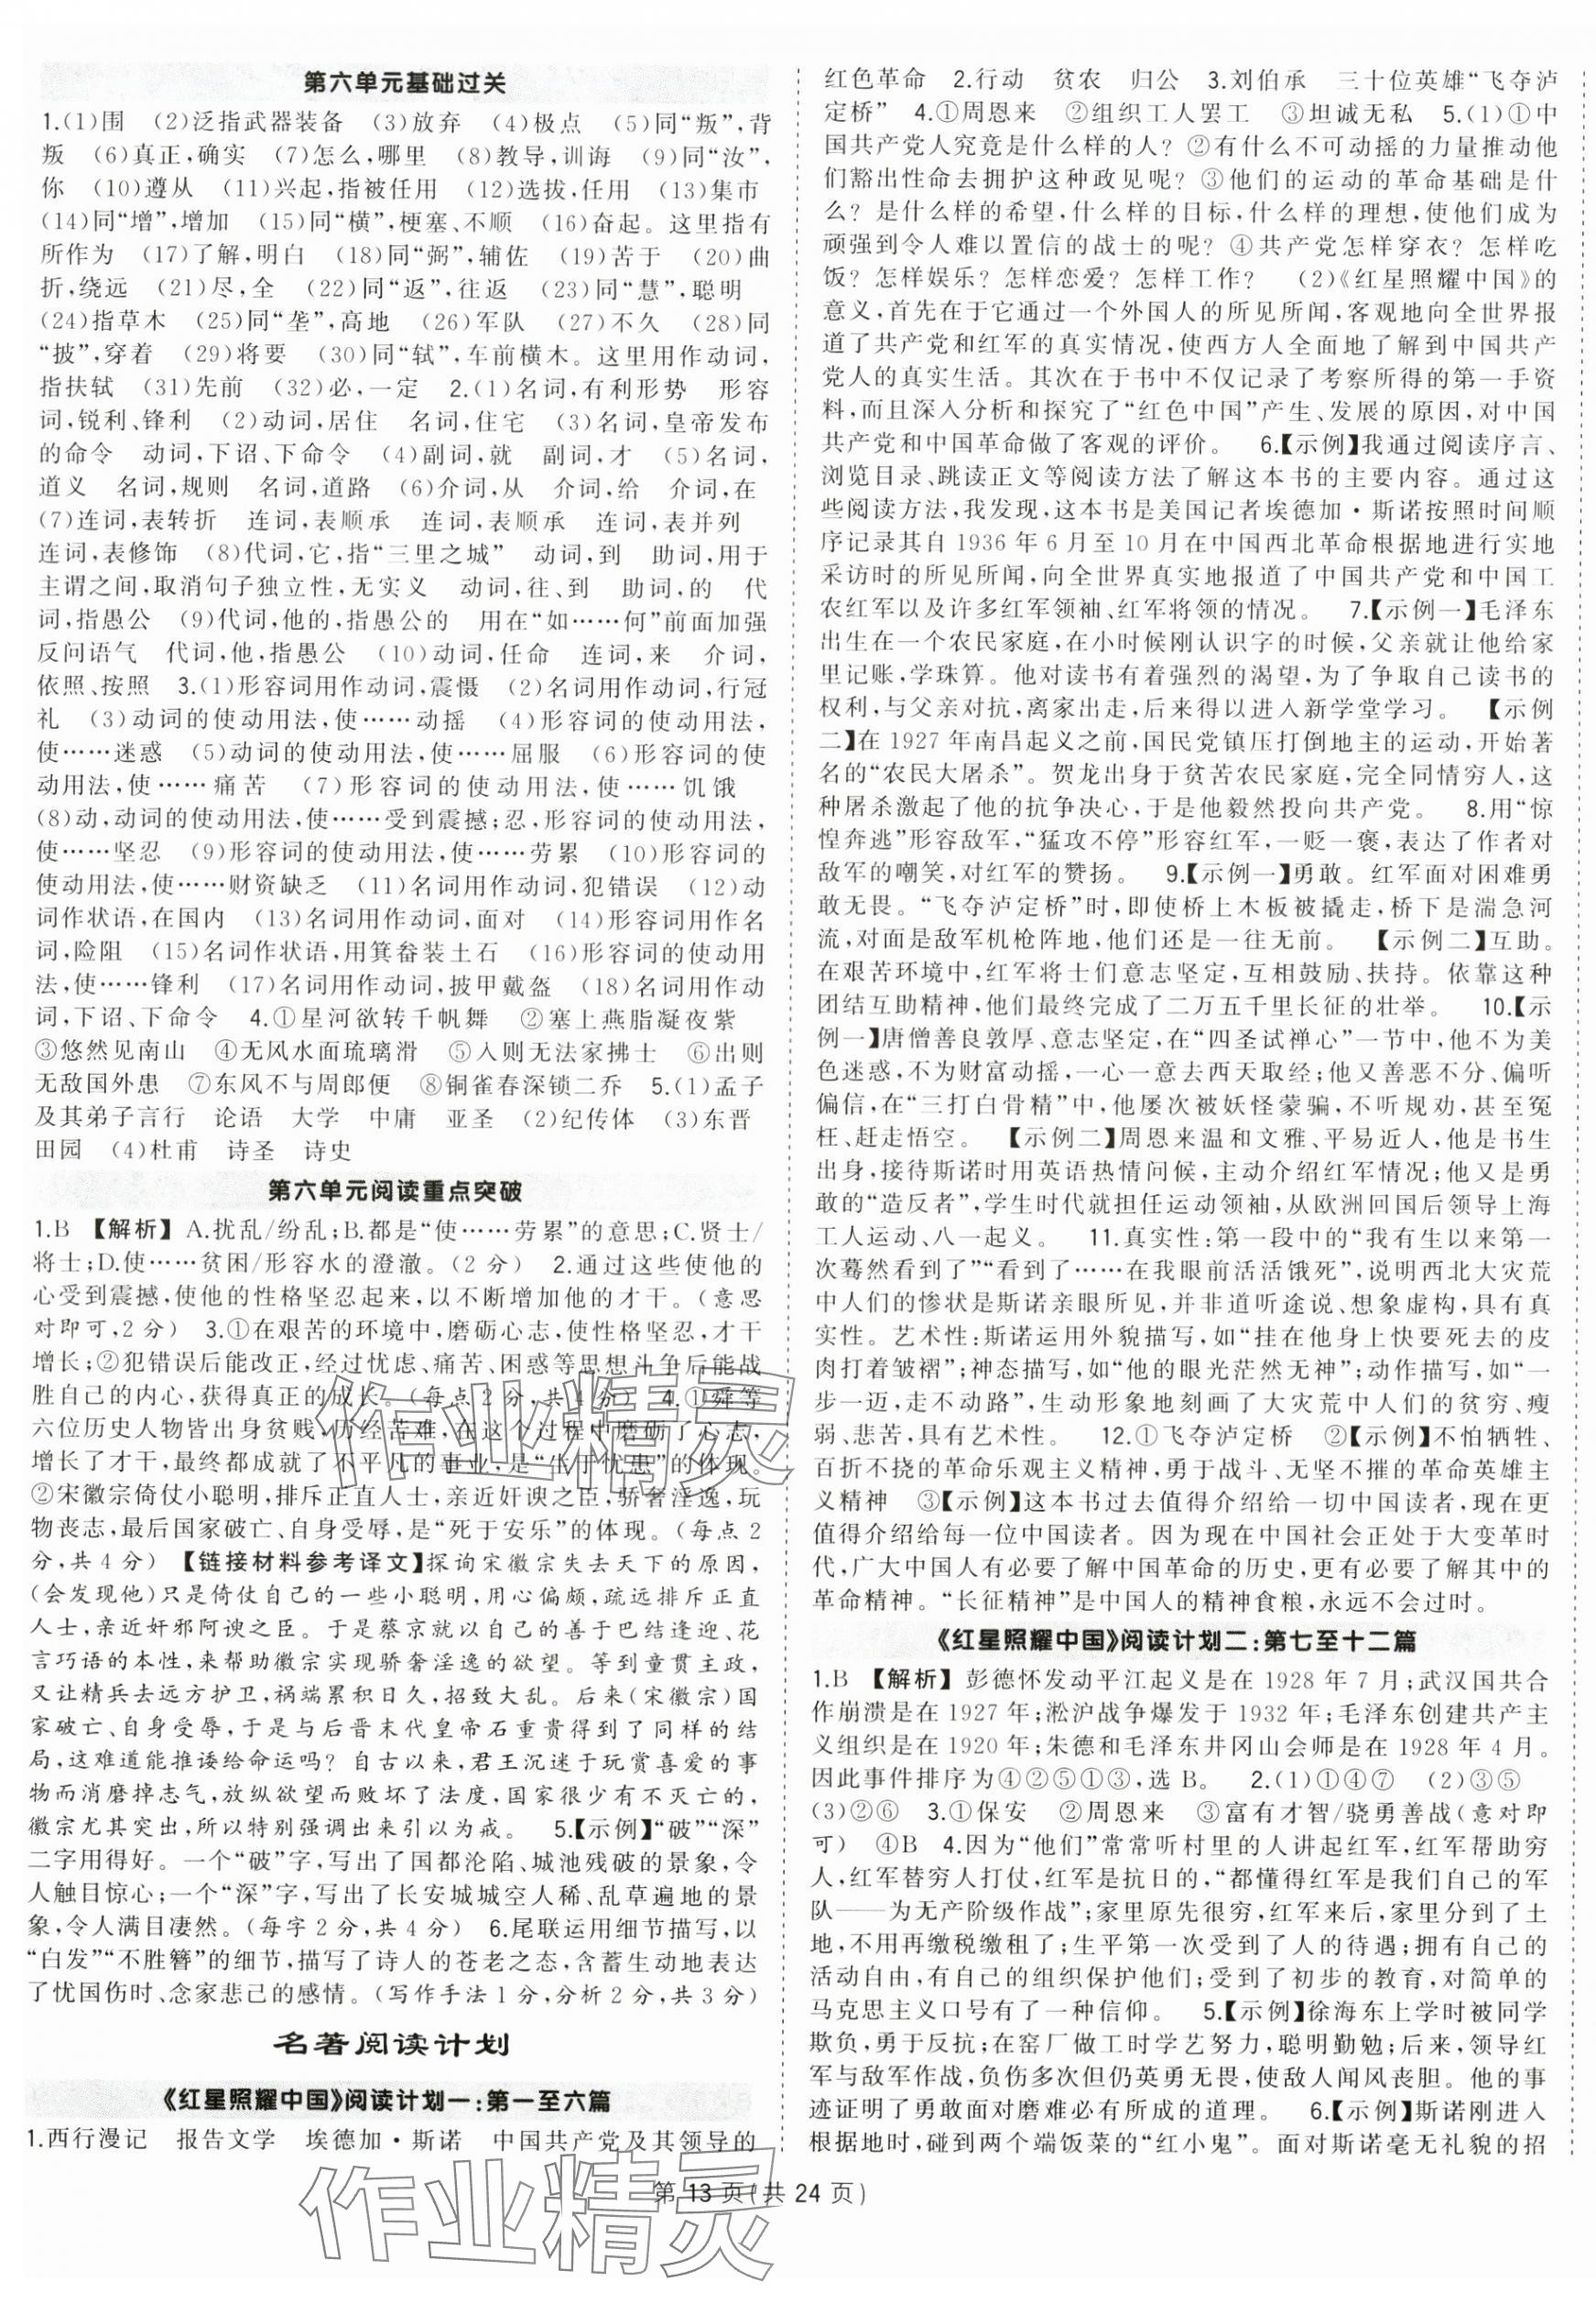 第六单元基础过关
1.(1)围　(2)泛指武器装备　(3)放弃　(4)极点　(5)同“叛”,背
叛　(6)真正,确实　(7)怎么,哪里　(8)教导,训诲　(9)同“汝”,
你　(10)遵从　(11)兴起,指被任用　(12)选拔,任用　(13)集市
(14)同“增”,增加　(15)同“横”,梗塞、不顺　(16)奋起。这里指有
所作为　(17)了解,明白　(18)同“弼”,辅佐　(19)苦于　(20)曲
折,绕远　(21)尽,全　(22)同“返”,往返　(23)同“慧”,聪明
(24)指草木　(25)同“垄”,高地　(26)军队　(27)不久　(28)同
“披”,穿着　(29)将要　(30)同“轼”,车前横木。这里用作动词,
指扶轼　(31)先前　(32)必,一定　2.(1)名词,有利形势　形容
词,锐利、锋利　(2)动词,居住　名词,住宅　(3)名词,皇帝发布
的命令　动词,下诏、下命令　(4)副词,就　副词,才　(5)名词,
道义　名词,规则　名词,道路　(6)介词,从　介词,给　介词,在
(7)连词,表转折　连词,表顺承　连词,表顺承　连词,表并列
连词,表修饰　(8)代词,它,指“三里之城”　动词,到　助词,用于
主谓之间,取消句子独立性,无实义　动词,往、到　助词,的　代
词,指愚公　(9)代词,他的,指愚公的　用在“如……何”前面加强
反问语气　代词,他,指愚公　(10)动词,任命　连词,来　介词,
依照、按照　3.(1)形容词用作动词,震慑　(2)名词用作动词,行冠
礼　(3)动词的使动用法,使……动摇　(4)形容词的使动用法,
使……迷惑　(5)动词的使动用法,使……屈服　(6)形容词的使
动用法,使……痛苦　(7)形容词的使动用法,使……饥饿
(8)动,动词的使动用法,使……受到震撼;忍,形容词的使动用法,
使……坚忍　(9)形容词的使动用法,使……劳累　(10)形容词的
使动用法,使……财资缺乏　(11)名词用作动词,犯错误　(12)动
词作状语,在国内　(13)名词用作动词,面对　(14)形容词用作名
词,险阻　(15)名词作状语,用箕畚装土石　(16)形容词的使动用
法,使……锋利　(17)名词用作动词,披甲戴盔　(18)名词用作动
词,下诏、下命令　4.①星河欲转千帆舞　②塞上燕脂凝夜紫
③悠然见南山　④无风水面琉璃滑　⑤入则无法家拂士　⑥出则
无敌国外患　⑦东风不与周郎便　⑧铜雀春深锁二乔　5.(1)孟子
及其弟子言行　论语　大学　中庸　亚圣　(2)纪传体　(3)东晋
田园　(4)杜甫　诗圣　诗史
第六单元阅读重点突破
1.B　【解析】A.扰乱/纷乱;B.都是“使……劳累”的意思;C.贤士/
将士;D.使……贫困/形容水的澄澈。(2分)　2.通过这些使他的
心受到震撼,使他的性格坚忍起来,以不断增加他的才干。(意思
对即可,2分)　3.①在艰苦的环境中,磨砺心志,使性格坚忍,才干
增长;②犯错误后能改正,经过忧虑、痛苦、困惑等思想斗争后能战
胜自己的内心,获得真正的成长。(每点2分,共4分)　4.①舜等
六位历史人物皆出身贫贱,历经苦难,在这个过程中磨砺了心志,
增长了才干,最终都成就了不平凡的事业,是“生于忧患”的体现。
②宋徽宗倚仗小聪明,排斥正直人士,亲近奸谀之臣,骄奢淫逸,玩
物丧志,最后国家破亡、自身受辱,是“死于安乐”的体现。(每点2
分,共4分)　【链接材料参考译文】探询宋徽宗失去天下的原因,
(会发现他)只是倚仗自己的一些小聪明,用心偏颇,疏远排斥正直
人士,亲近奸邪阿谀之臣。于是蔡京就以自己的善于巴结逢迎、花
言巧语的本性,来帮助徽宗实现骄奢淫逸的欲望。等到童贯主政,
又让精兵去远方护卫,祸端累积日久,招致大乱。后来(宋徽宗)国
家破亡、自身受辱,于是与后晋末代皇帝石重贵得到了同样的结
局,这难道能推诿给命运吗？自古以来,君王沉迷于玩赏喜爱的事
物而消磨掉志气,放纵欲望而败坏了法度,国家很少有不灭亡的,
徽宗尤其突出,所以特别强调出来引以为戒。　5.【示例】“破”“深”
二字用得好。一个“破”字,写出了国都沦陷、城池残破的景象,令
人触目惊心;一个“深”字,写出了长安城城空人稀、乱草遍地的景
象,令人满目凄然。(每字2分,共4分)　6.尾联运用细节描写,以
“白发”“不胜簪”的细节,描写了诗人的苍老之态,含蓄生动地表达
了忧国伤时、念家悲己的感情。(写作手法1分,分析2分,共3分)
名著阅读计划
《红星照耀中国》阅读计划一:第一至六篇
1.西行漫记　报告文学　埃德加·斯诺　中国共产党及其领导的
红色革命　2.行动　贫农　归公　3.刘伯承　三十位英雄“飞夺泸
定桥”　4.①周恩来　②组织工人罢工　③坦诚无私　5.(1)①中
国共产党人究竟是什么样的人？②有什么不可动摇的力量推动他
们豁出性命去拥护这种政见呢？③他们的运动的革命基础是什
么？是什么样的希望,什么样的目标,什么样的理想,使他们成为
顽强到令人难以置信的战士的呢？④共产党怎样穿衣？怎样吃
饭？怎样娱乐？怎样恋爱？怎样工作？　(2)《红星照耀中国》的
意义,首先在于它通过一个外国人的所见所闻,客观地向全世界报
道了共产党和红军的真实情况,使西方人全面地了解到中国共产
党人的真实生活。其次在于书中不仅记录了考察所得的第一手资
料,而且深入分析和探究了“红色中国”产生、发展的原因,对中国
共产党和中国革命做了客观的评价。　6.【示例】我通过阅读序言、
浏览目录、跳读正文等阅读方法了解这本书的主要内容。通过这
些阅读方法,我发现,这本书是美国记者埃德加·斯诺按照时间顺
序记录其自1936年6月至10月在中国西北革命根据地进行实地
采访时的所见所闻,向全世界真实地报道了中国共产党和中国工
农红军以及许多红军领袖、红军将领的情况。　7.【示例一】毛泽东
出生在一个农民家庭,在小时候刚认识字的时候,父亲就让他给家
里记账,学珠算。他对读书有着强烈的渴望,为了争取自己读书的
权利,与父亲对抗,离家出走,后来得以进入新学堂学习。　【示例
二】在1927年南昌起义之前,国民党镇压打倒地主的运动,开始著
名的“农民大屠杀”。贺龙出身于贫苦农民家庭,完全同情穷人,这
种屠杀激起了他的抗争决心,于是他毅然投向共产党。　8.用“惊
惶奔逃”形容敌军,“猛攻不停”形容红军,一贬一褒,表达了作者对
敌军的嘲笑,对红军的赞扬。　9.【示例一】勇敢。红军面对困难勇
敢无畏。“飞夺泸定桥”时,即使桥上木板被撬走,桥下是湍急河
流,对面是敌军机枪阵地,他们还是一往无前。　【示例二】互助。
在艰苦环境中,红军将士们意志坚定,互相鼓励、扶持。依靠这种
团结互助精神,他们最终完成了二万五千里长征的壮举。　10.【示
例一】唐僧善良敦厚、意志坚定,在“四圣试禅心”一节中,他不为美
色迷惑,不为财富动摇,一心一意去西天取经;他又善恶不分、偏听
偏信,在“三打白骨精”中,他屡次被妖怪蒙骗,不听规劝,甚至冤
枉、赶走悟空。　【示例二】周恩来温和文雅、平易近人,他是书生
出身,接待斯诺时用英语热情问候,主动介绍红军情况;他又是勇
敢的“造反者”,学生时代就担任运动领袖,从欧洲回国后领导上海
工人运动、八一起义。　11.真实性:第一段中的“我有生以来第一
次蓦然看到了”“看到了……在我眼前活活饿死”,说明西北大灾荒
中人们的惨状是斯诺亲眼所见,并非道听途说、想象虚构,具有真
实性。艺术性:斯诺运用外貌描写,如“挂在他身上快要死去的皮
肉打着皱褶”;神态描写,如“他的眼光茫然无神”;动作描写,如“一
步一迈,走不动路”,生动形象地刻画了大灾荒中人们的贫穷、瘦
弱、悲苦,具有艺术性。　12.①飞夺泸定桥　②【示例】不怕牺牲、
百折不挠的革命乐观主义精神,勇于战斗、无坚不摧的革命英雄主
义精神　③【示例】这本书过去值得介绍给一切中国读者,现在更
值得介绍给每一位中国读者。因为现在中国社会正处于大变革时
代,广大中国人有必要了解中国革命的历史,更有必要了解其中的
革命精神。“长征精神”是中国人的精神食粮,永远不会过时。
《红星照耀中国》阅读计划二:第七至十二篇
1.B　【解析】彭德怀发动平江起义是在1928年7月;武汉国共合
作崩溃是在1927年;淞沪战争爆发于1932年;毛泽东创建共产主
义组织是在1920年;朱德和毛泽东井冈山会师是在1928年4月。
因此事件排序为④②⑤①③,选B。　2.(1)①④⑦　(2)③⑤
(3)②⑥　3.①保安　②周恩来　③富有才智/骁勇善战(意对即
可)　④B　4.因为“他们”常常听村里的人讲起红军,红军帮助穷
人,红军替穷人打仗,红军是抗日的,“都懂得红军是我们自己的军
队——为无产阶级作战”;家里原先很穷,红军来后,家里分到了土
地,不用再缴税缴租了;生平第一次受到了人的待遇;拥有自己的
活动自由,有自己的组织保护他们;受到了初步的教育,对简单的
马克思主义口号有了一种信仰。　5.【示例】徐海东上学时被同学
欺负,勇于反抗;在窑厂做工时学艺努力,聪明勤勉;后来,领导红
军与敌军作战,负伤多次但仍英勇无畏,使敌人闻风丧胆。他的事
迹证明了勇敢面对磨难必有所成的道理。　6.【示例】斯诺刚进入
根据地时,碰到两个端饭菜的“红小鬼”。面对斯诺毫无礼貌的招
第13页(共24页)
作业精灵
作业精灵